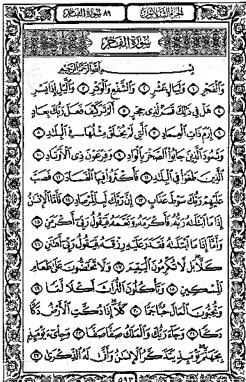 الجزء الثلاثون ٨٩ سورة الفجر
سورة الفجر
بسم الله الرحمن الرحيم
وَالْفَجْرِ ١ وَلَيَالٍ عَشْرٍ ٢ وَالشَّفْعِ وَالْوَتْرِ ٣ وَالَّيْلِ إِذَا يَسْرِ ٤
هَلْ فِي ذَٰلِكَ قَسَمٌ لِّذِي حِجْرٍ ٥ أَلَمْ تَرَ كَيْفَ فَعَلَ رَبُّكَ بِعَادٍ ٦
إِرَمَ ذَاتِ الْعِمَادِ ٧ الَّتِي لَمْ يُخْلَقْ مِثْلُهَا فِي الْبِلَٰدِ ٨
وَثَمُودَ الَّذِينَ جَابُوا الصَّخْرَ بِالْوَادِ ٩ وَفِرْعَوْنَ ذِي الْأَوْتَادِ ١٠
الَّذِينَ طَغَوْا فِي الْبِلَٰدِ ١١ فَأَكْثَرُوا فِيهَا الْفَسَادَ ١٢ فَصَبَّ
عَلَيْهِمْ رَبُّكَ سَوْطَ عَذَابٍ ١٣ إِنَّ رَبَّكَ لَبِالْمِرْصَادِ ١٤ فَأَمَّا الْإِنسَٰنُ
إِذَا مَا ابْتَلَىٰهُ رَبُّهُ فَأَكْرَمَهُ وَنَعَّمَهُ فَيَقُولُ رَبِّي أَكْرَمَنِ ١٥
وَأَمَّا إِذَا مَا ابْتَلَىٰهُ فَقَدَرَ عَلَيْهِ رِزْقَهُ فَيَقُولُ رَبِّي أَهَٰنَنِ ١٦
كَلَّا بَل لَّا تُكْرِمُونَ الْيَتِيمَ ١٧ وَلَا تَحَٰضُّونَ عَلَىٰ طَعَامِ
الْمِسْكِينِ ١٨ وَتَأْكُلُونَ التُّرَاثَ أَكْلًا لَّمًّا ١٩
وَتُحِبُّونَ الْمَالَ حُبًّا جَمًّا ٢٠ كَلَّا إِذَا دُكَّتِ الْأَرْضُ دَكًّا
دَكًّا ٢١ وَجَاءَ رَبُّكَ وَالْمَلَكُ صَفًّا صَفًّا ٢٢ وَجِايءَ يَوْمَئِذٍ
بِجَهَنَّمَ يَوْمَئِذٍ يَتَذَكَّرُ الْإِنسَٰنُ وَأَنَّىٰ لَهُ الذِّكْرَىٰ ٢٣
٥٩٣